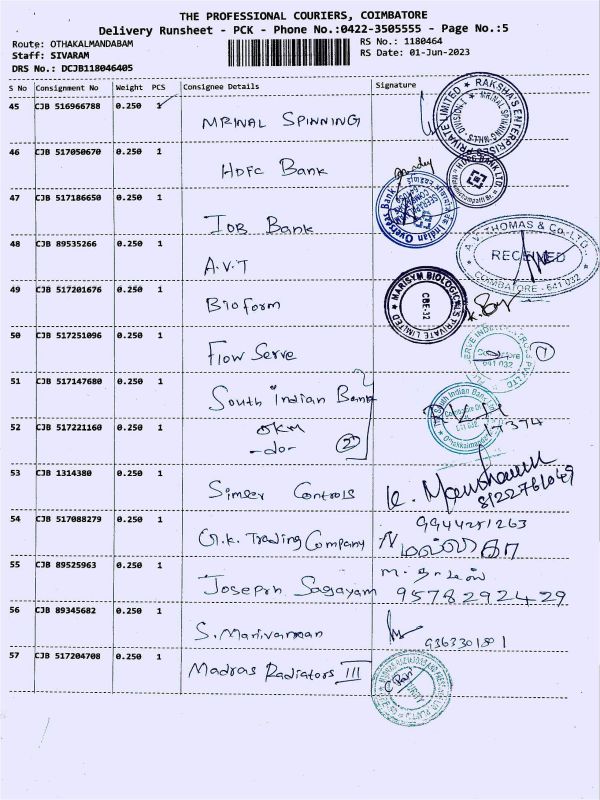 THE PROFESSIONAL COURIERS, COIMBATORE
Delivery Runsheet - PCK - Phone No.:0422-3505555 - Page No.:5
Route: OTHAKALMANDABAM
RS No.: 1180464
Staff: SIVARAM
RS Date: 01-Jun-2023
DRS No.: DCJB118046405
S No Consignment No Weight PCS Consignee Details Signature
45 CJB 516966788 0.250 1
MRINAL SPINNING
RAKSHA'S ENTERPRISES PRIVATE LIMITED
MRINAL SPINNING MILLS - DIVISION-I
46 CJB 517050670 0.250 1
HDFC Bank
HDFC BANK LTD.
47 CJB 517186650 0.250 1
IOB Bank
Indian Overseas Bank
48 CJB 89535266 0.250 1
A.V.T
A.V. THOMAS & Co. LTD.
RECEIVED
COIMBATORE - 641 032
49 CJB 517201676 0.250 1
Bioform
MARISYM BIOLOGICALS PRIVATE LIMITED
CBE-32
50 CJB 517251096 0.250 1
Flow Serve
641 032
1
51 CJB 517147680 0.250 1
South Indian Bank
South Indian Bank Ltd
52 CJB 517221160 0.250 1
OKM
-do-
2
17374
53 CJB 1314380 0.250 1
Simser Controls
8122761049
54 CJB 517088279 0.250 1
G.K. Trading Company
9944251263
55 CJB 89525963 0.250 1
Joseph Sagayam
9578292429
56 CJB 89345682 0.250 1
S. Manivannan
9363301801
57 CJB 517204708 0.250 1
Madras Radiators III